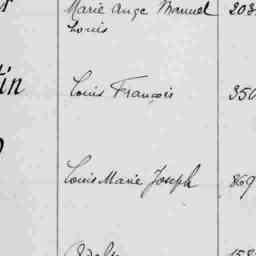 Marie Ange Manuel 203
Louis
tin
Louis François 350
Louis Marie Joseph 869